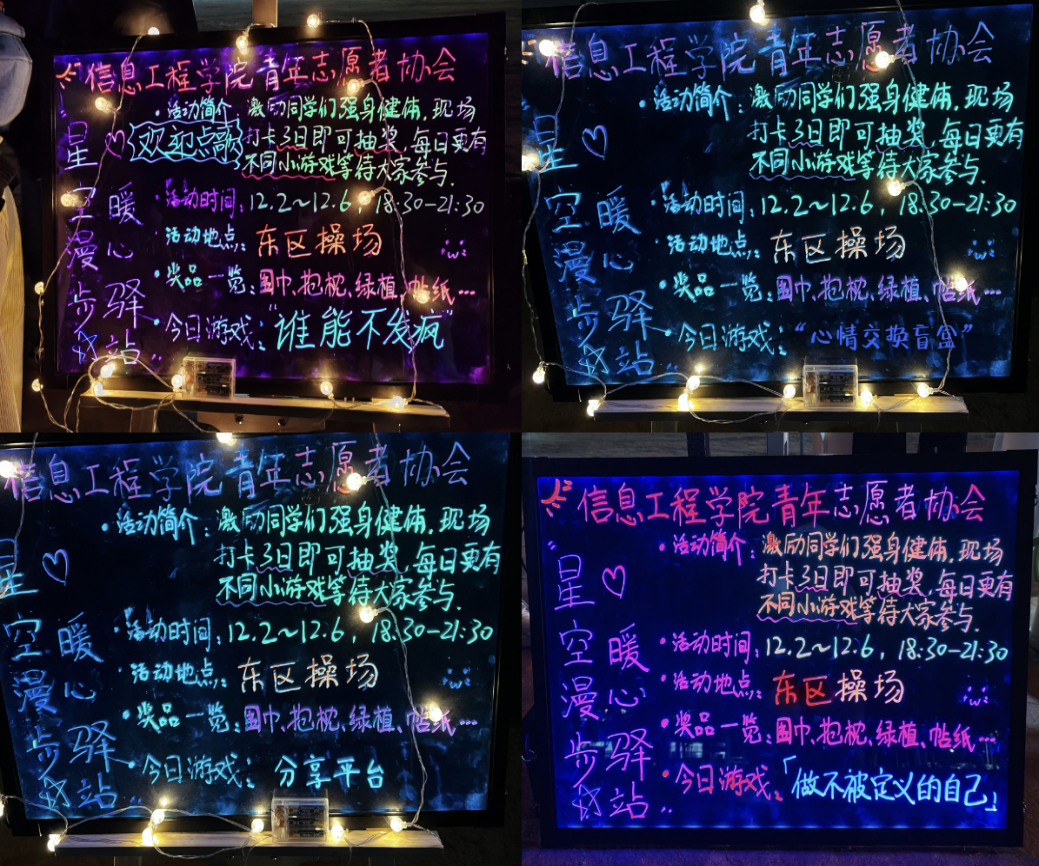 信息工程学院青年志愿者协会
星空漫步
♡暖心驿站..
欢迎点歌
·活动简介:激励同学们强身健体,现场
打卡3日即可抽奖,每日更有
不同小游戏等待大家参与.
·活动时间:12.2~12.6,18:30-21:30
·活动地点:东区操场
·奖品一览:围巾、抱枕、绿植、帖纸…
·今日游戏:“谁能不发疯”
信息工程学院青年志愿者协会
星空漫步
♡暖心驿站..
·活动简介:激励同学们强身健体,现场
打卡3日即可抽奖,每日更有
不同小游戏等待大家参与.
·活动时间:12.2~12.6,18:30-21:30
·活动地点:东区操场
·奖品一览:围巾、抱枕、绿植、帖纸…
·今日游戏:“心情交换盲盒”
信息工程学院青年志愿者协会
星空漫步
♡暖心驿站..
·活动简介:激励同学们强身健体,现场
打卡3日即可抽奖,每日更有
不同小游戏等待大家参与.
·活动时间:12.2~12.6,18:30-21:30
·活动地点:东区操场
·奖品一览:围巾、抱枕、绿植、帖纸…
·今日游戏:分享平台
信息工程学院青年志愿者协会
“星空漫步
♡暖心驿站..
·活动简介:激励同学们强身健体,现场
打卡3日即可抽奖,每日更有
不同小游戏等待大家参与.
·活动时间:12.2~12.6,18:30-21:30
·活动地点:东区操场
·奖品一览:围巾、抱枕、绿植、帖纸…
·今日游戏:「做不被定义的自己」